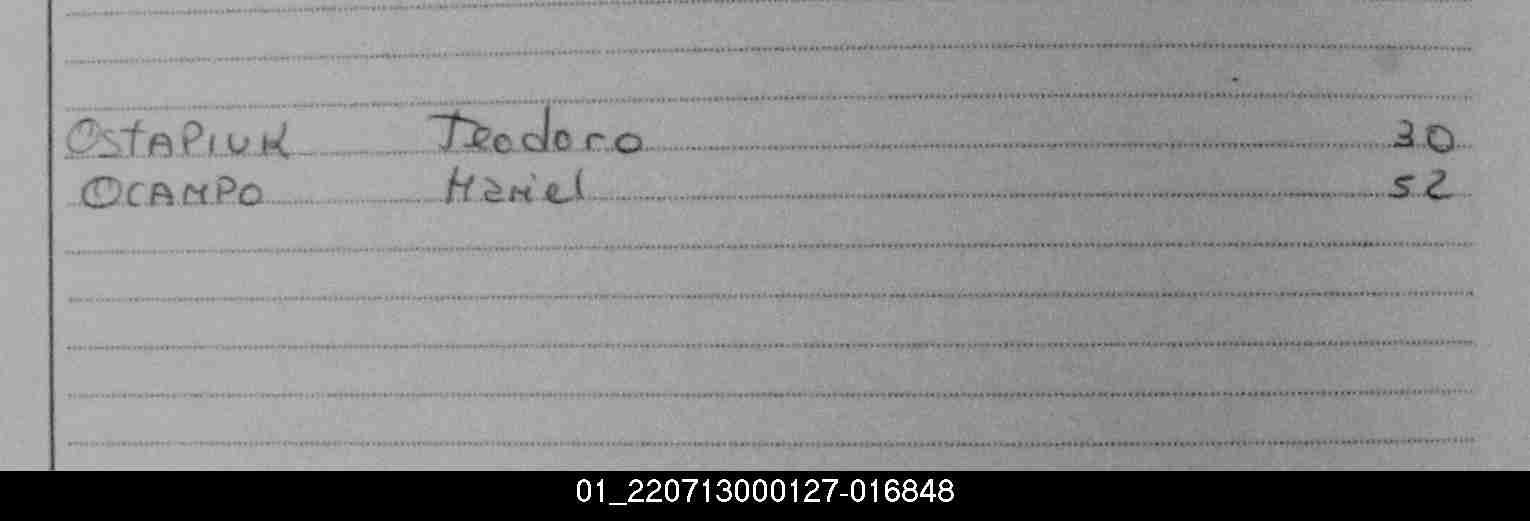 OSTAPIUK Teodoro 30
OCAMPO Mariel 52
01_220713000127-016848